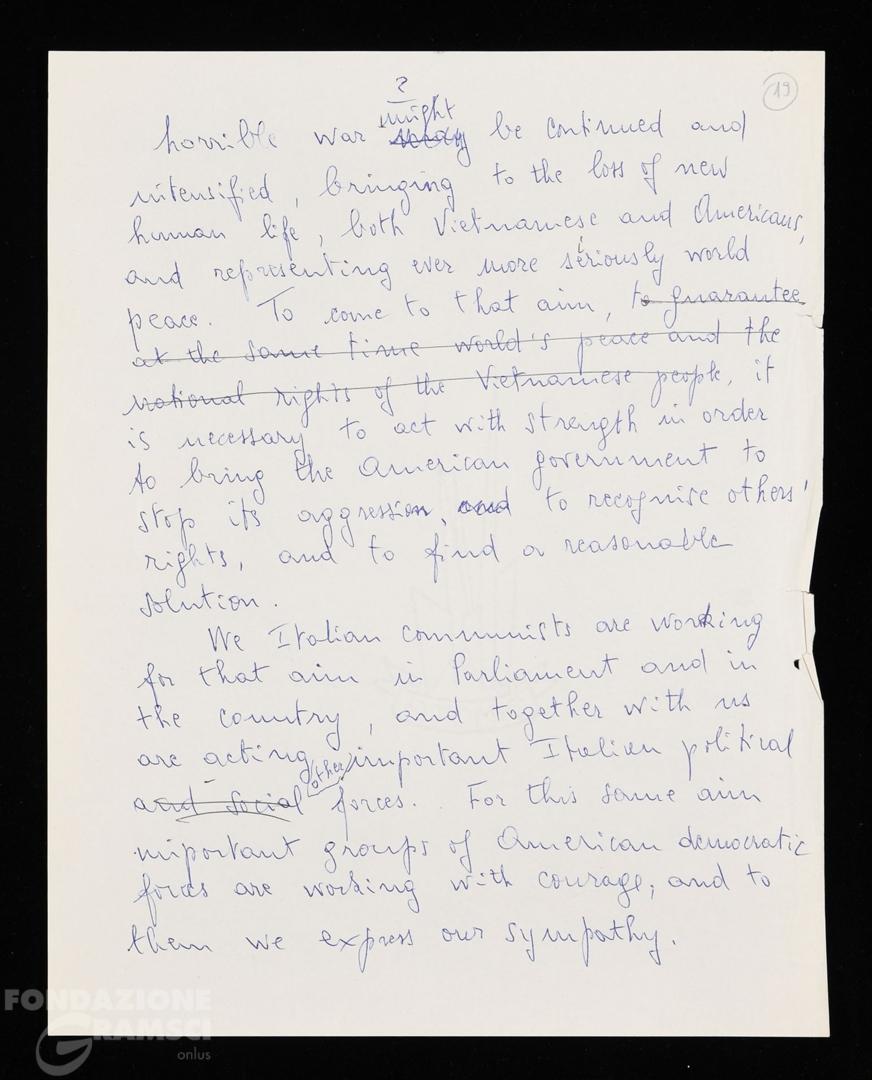 19
?
might
horrible war may be continued and
intensified, bringing to the loss of new
human life, both Vietnamese and Americans,
and representing ever more seriously world
peace. To come to that aim, to guarantee
at the same time world's peace and the
national rights of the Vietnamese people, it
is necessary to act with strength in order
to bring the American government to
stop its aggression, and to recognise others'
rights, and to find a reasonable
solution.
We Italian communists are working
for that aim in Parliament and in
the country, and together with us
are acting other important Italian political
and social forces. For this same aim
important groups of American democratic
forces are working with courage, and to
them we express our sympathy.
FONDAZIONE
GRAMSCI
onlus